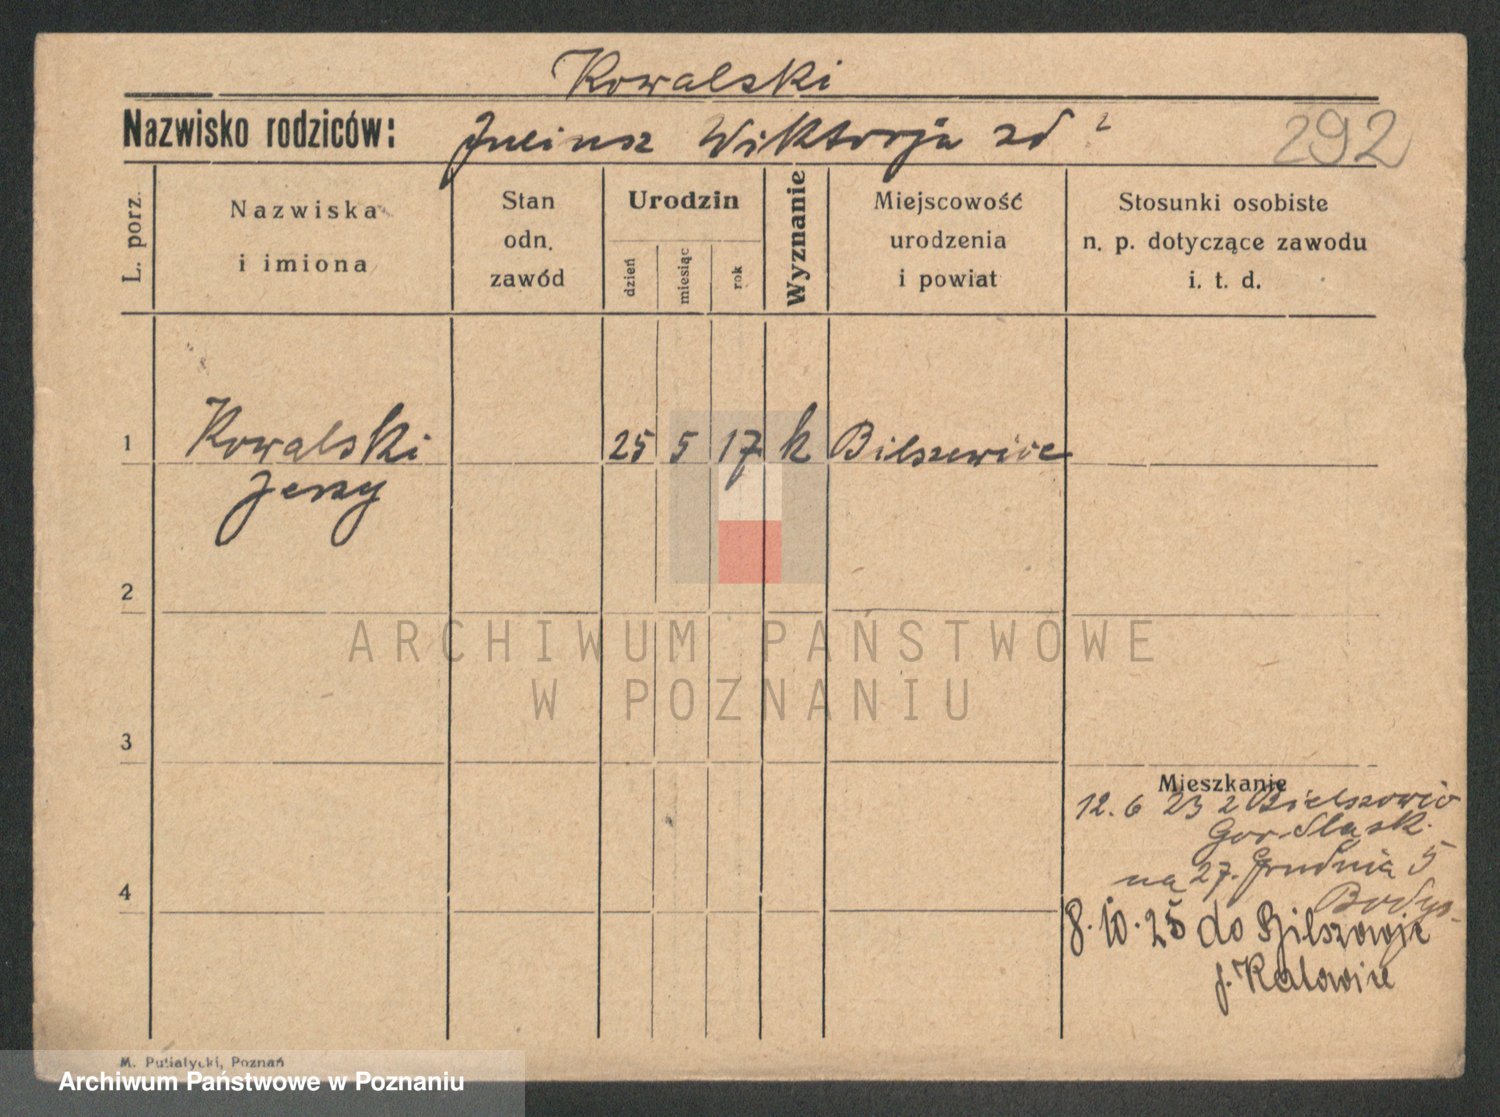 Kowalski
Nazwisko rodziców: Juliusz Wiktorja zd
292
L. porz.
Nazwiska
i imiona
Stan
odn.
zawód
Urodzin
dzień
miesiąc
rok
Wyznanie
Miejscowość
urodzenia
i powiat
Stosunki osobiste
n. p. dotyczące zawodu
i. t. d.
1 Kowalski 25 5 17 k Bilszewice
Jerzy
2
ARCHIWUM PAŃSTWOWE
W POZNANIU
3
Mieszkanie
12. 6 23 z Bielszowic
Gor Slask.
na 27. Grudnia 5
4
8. 10. 25 do Bilszowje
p. Katowice
M. Putiatycki, Poznań
Archiwum Państwowe w Poznaniu